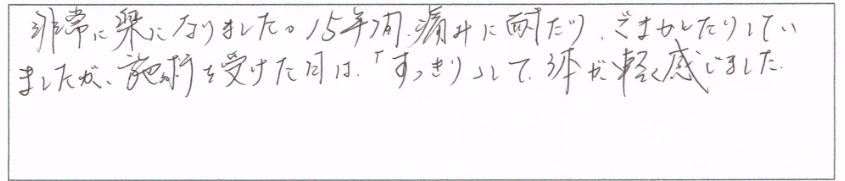 非常に楽になりました。15年間、痛みに耐たり、ごまかしたりしてい
ましたが、施術を受けた日は、「すっきり」して、体が、軽く感じました。